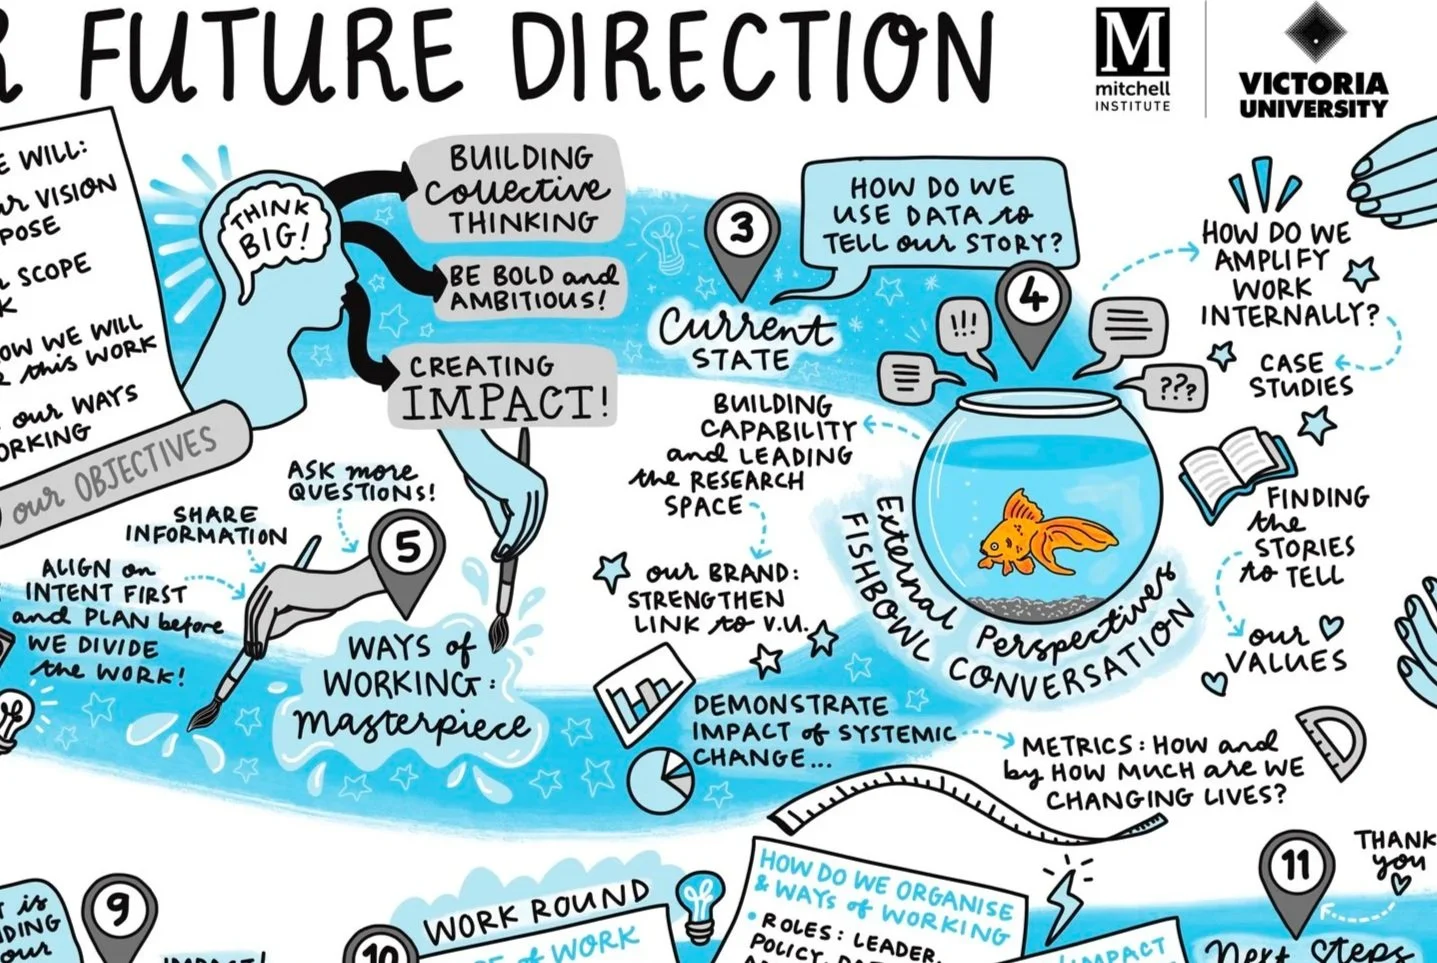 FUTURE DIRECTION
M
mitchell
INSTITUTE
VICTORIA
UNIVERSITY
WILL:
VISION
SCOPE
WE WILL
this WORK
our WAYS
our OBJECTIVES
THINK
BIG!
BUILDING
Collective
THINKING
BE BOLD and
AMBITIOUS!
CREATING
IMPACT!
3
Current
STATE
HOW DO WE
USE DATA to
TELL our STORY?
4
!!!
???
External Perspectives
FISHBOWL CONVERSATION
HOW DO WE
AMPLIFY
WORK
INTERNALLY?
CASE
STUDIES
FINDING
the
STORIES
to TELL
our
VALUES
BUILDING
CAPABILITY
and LEADING
the RESEARCH
SPACE
our BRAND:
STRENGTHEN
LINK to V.U.
DEMONSTRATE
IMPACT of SYSTEMIC
CHANGE...
METRICS: HOW and
by HOW MUCH are WE
CHANGING LIVES?
5
WAYS of
WORKING:
Masterpiece
ASK more
QUESTIONS!
SHARE
INFORMATION
ALIGN on
INTENT FIRST
and PLAN before
WE DIVIDE
the WORK!
9
is
our
IMPACT!
10
WORK ROUND
of WORK
HOW DO WE ORGANISE
& WAYS of WORKING
• ROLES: LEADER,
POLICY,
IMPACT
11
THANK
you
Next Steps